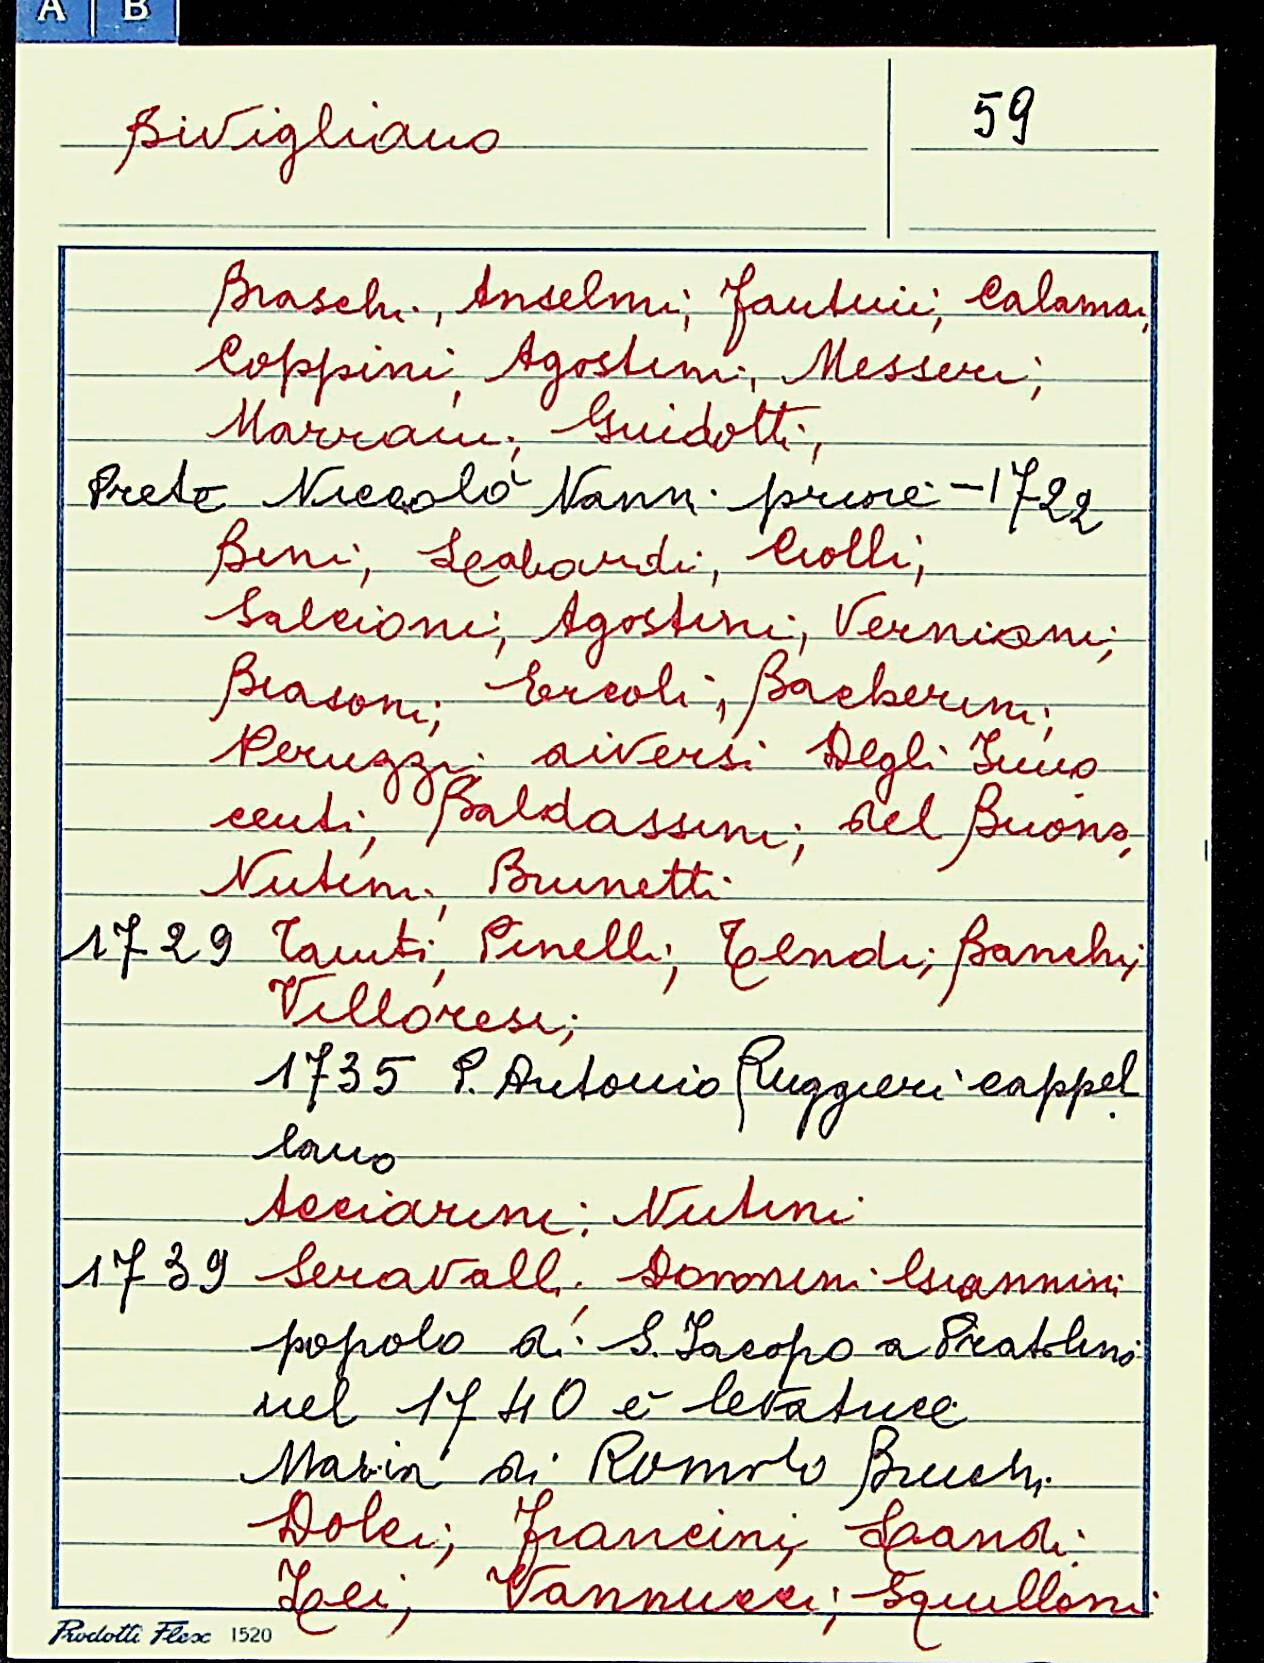 A B
Bivigliano
59
Braschi, Anselmi; Fantuii; Calamai,
Coppini, Agostini, Messeri;
Marrani; Guidotti;
Prete Niccolò Nanni priore - 1722
Bini; Scabardi; Ciolli;
Salcioni; Agostini; Vernioni;
Biasoni; Ercoli; Bacherini;
Peruzzi diversi Degli Inno
centi; Baldassini; del Buono,
Nutini, Brunetti
1729 Tanti, Pinelli; Tendi; Banchi;
Villoresi;
1735 P. Antonio Ruggieri cappel
lano
Acciarini; Nutini
1739 Seravalli, Donnini Giannini
popolo di S. Jacopo a Pratolino
nel 1740 è levatrice
Maria di Romolo Bruchi
Dolci; Francini; Landi;
Lei; Vannucci; Squilloni
Prodotti Flex 1520